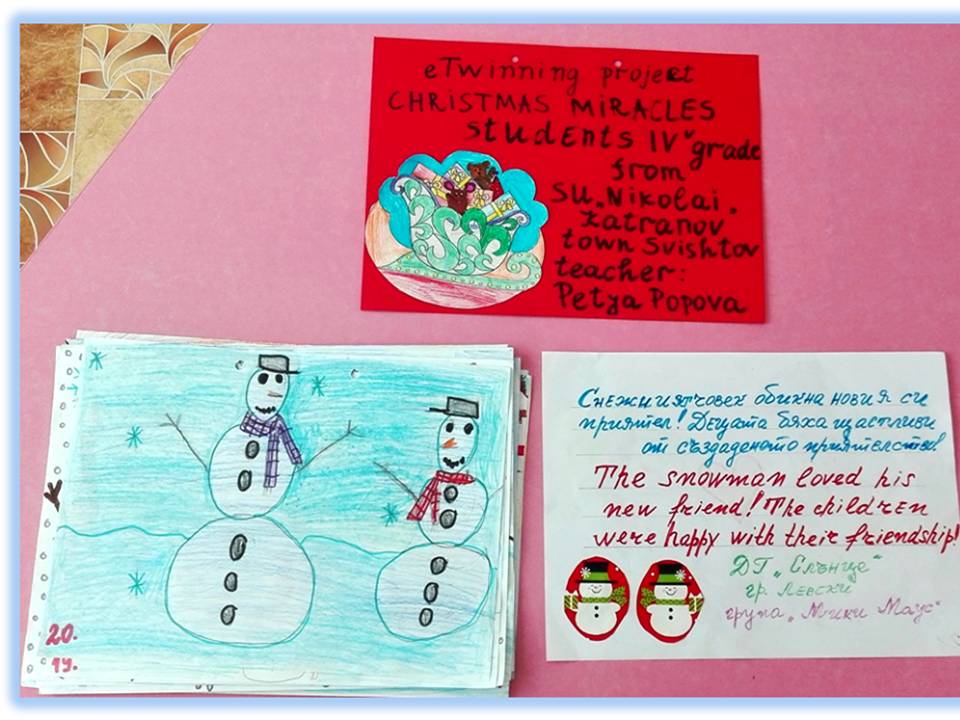 eTwinning project
CHRISTMAS MIRACLES
students IV v grade
from
SU „Nikolai
Katranov
town Svishtov
teacher:
Petya Popova
20.
19.
Снежният човек обикна новия си
приятел! Децата бяха щастливи
от създаденото приятелство!
The snowman loved his
new friend! The children
were happy with their friendship!
ДГ „Слънце“
гр. Левски
група „Мики Маус“